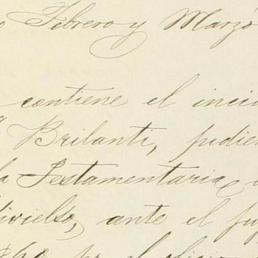 Febrero y Marzo
contiene el inci
Brilanti, pidie
la Testamentaria
divielso, ante el